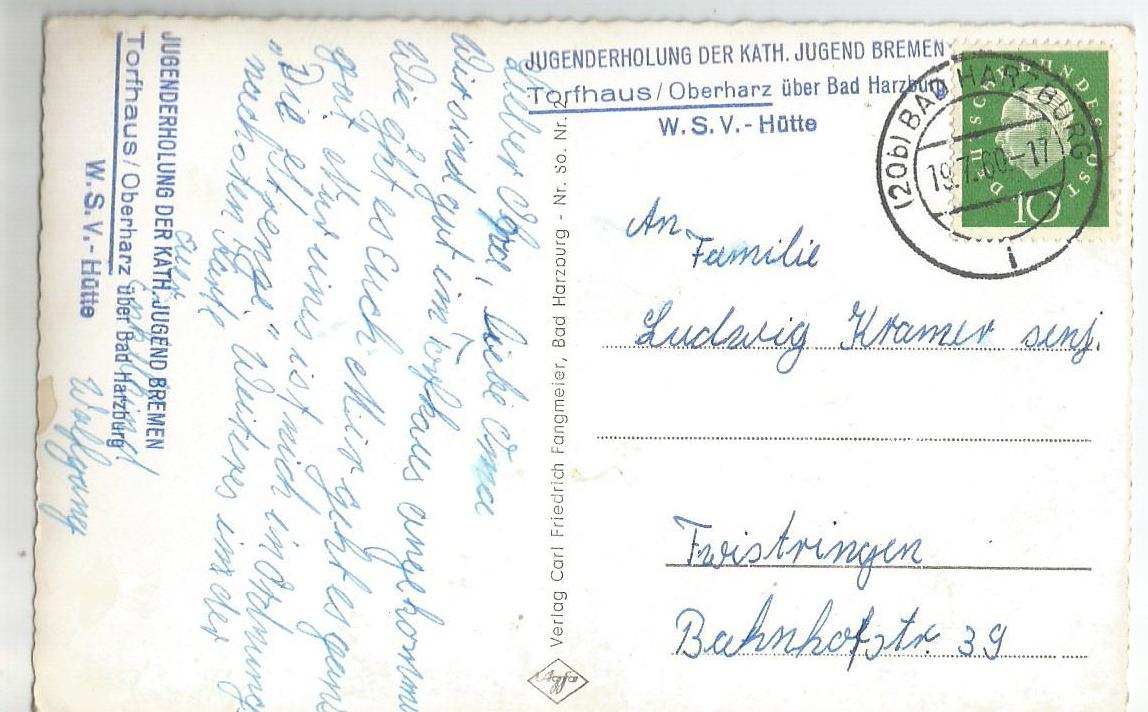 JUGENDERHOLUNG DER KATH. JUGEND BREMEN
Torfhaus/Oberharz über Bad Harzburg
W.S.V.-Hütte
Lieber Opa, liebe Oma
Wir sind gut im Torfhaus angekommen
Wie geht es Euch Mir geht es ganz
gut. Nur eins ist nich in Ordnung.
„Die Strenge" Weiteres in der
nächsten Karte
Euer
Wolfgang
JUGENDERHOLUNG DER KATH. JUGEND BREMEN
Torfhaus/Oberharz über Bad Harzburg
W.S.V.-Hütte
Verlag Carl Friedrich Fangmeier, Bad Harzburg - Nr. so. Nr. 2
Agfa
DEUTSCHE BUNDESPOST
10
(20b) BAD HARZBURG
19.7.60.-17
i
An
Familie
Ludwig Kramer senj.
Twistringen
Bahnhofstr. 39